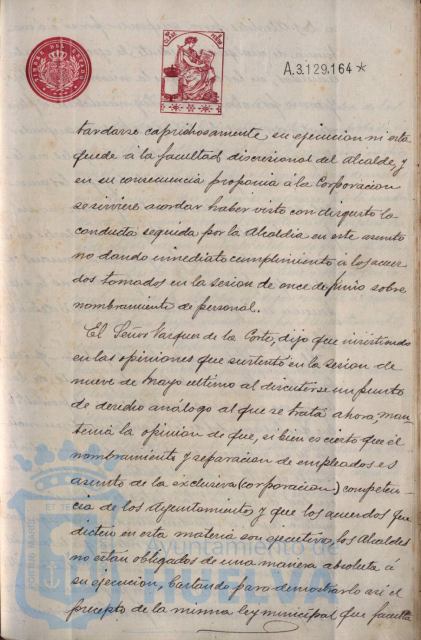 A.3.129.164*
tardarse caprichosamente su ejecucion ni esta
quede á la facultad discrecional del Alcalde, y
en su consecuencia proponia á la Corporacion
se sirviere acordar haber visto con disgusto la
conducta seguida por la Alcaldia en este asunto
no dando inmediato cumplimiento á los acuer
dos tomados en la sesion de once de Junio sobre
nombramiento de personal.
El Señor Vazquez de la Corte, dijo que insistiendo
en las opiniones que sustentó en la sesion de
nueve de Mayo ultimo al discutirse un punto
de derecho análogo al que se trata ahora, man-
tenia la opinion de que, si bien es cierto que el
nombramiento y separacion de empleados es
asunto de la exclusiva (corporacion) competen-
cia de los Ayuntamientos y que los acuerdos que
dicten en esta materia son ejecutivos, los Alcaldes
no estan obligados de una manera absoluta á
su ejecucion, bastando para demostrarlo asi el
precepto de la misma ley municipal que faculta
Ayuntamiento de
HUELVA